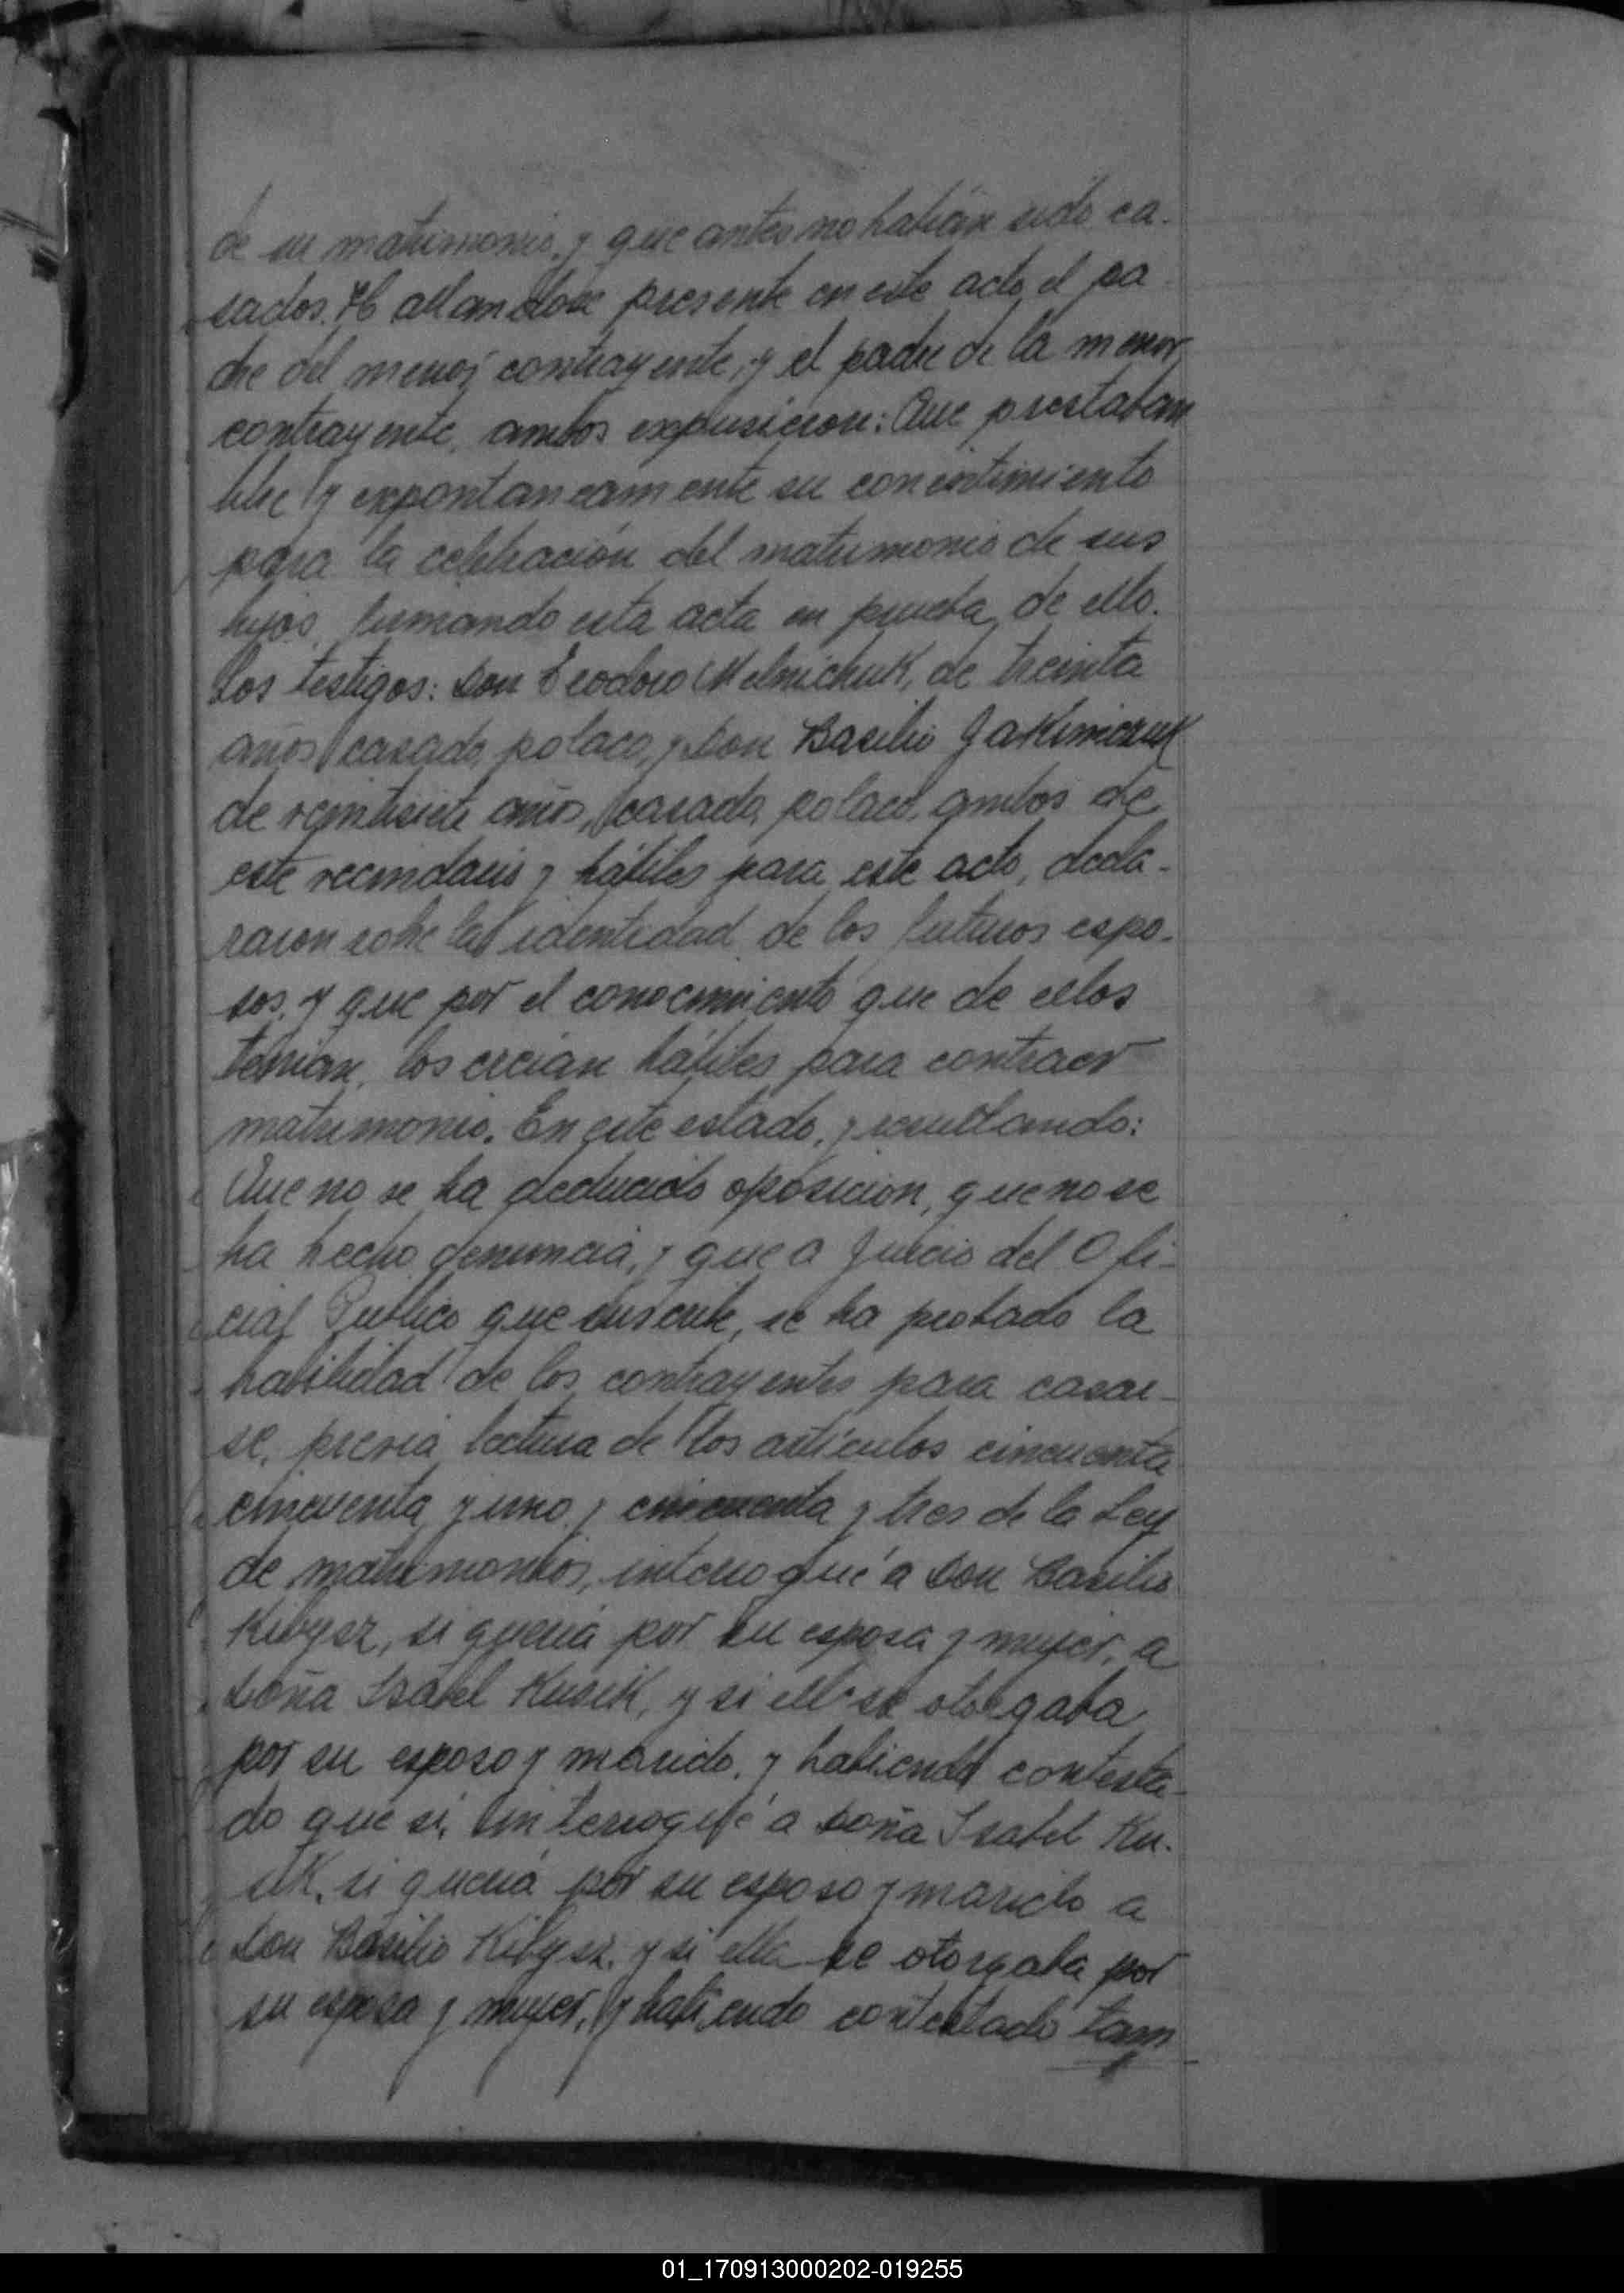 de su matrimonio, y que antes no habían sido ca-
sados. Hallandose presente en este acto el pa-
dre del menor contrayente, y el padre de la menor
contrayente, ambos expusieron: Que prestaban
libre y expontaneamente su consentimiento
para la celebración del matrimonio de sus
hijos firmando esta acta en prueba de ello.
Los testigos: don Teodoro Melnichuk, de treinta
años, casado, polaco, y don Basilio Jakimczuk
de veintisiete años, casado, polaco, ambos de
este vecindario y hábiles para este acto, decla-
raron sobre la identidad de los futuros espo-
sos, y que por el conocimiento que de ellos
tenían, los creían hábiles para contraer
matrimonio. En este estado, y resultando:
Que no se ha deducido oposición, que no se
ha hecho denuncia, y que a juicio del Ofi-
cial Publico que suscribe, se ha probado la
habilidad de los contrayentes para casar-
se, previa lectura de los artículos cincuenta
cincuenta y uno y cincuenta y tres de la Ley
de matrimonios, interrogué a don Basilio
Kibysz, si quería por su esposa y mujer, a
doña Isabel Kusik, y si el se otorgaba
por su esposo y marido, y habiendo contesta-
do que sí, interrogué a doña Isabel Ku-
sik, si quería por su esposo y marido a
don Basilio Kibysz, y si ella se otorgaba por
su esposa y mujer, y habiendo contestado tam
01_170913000202-019255